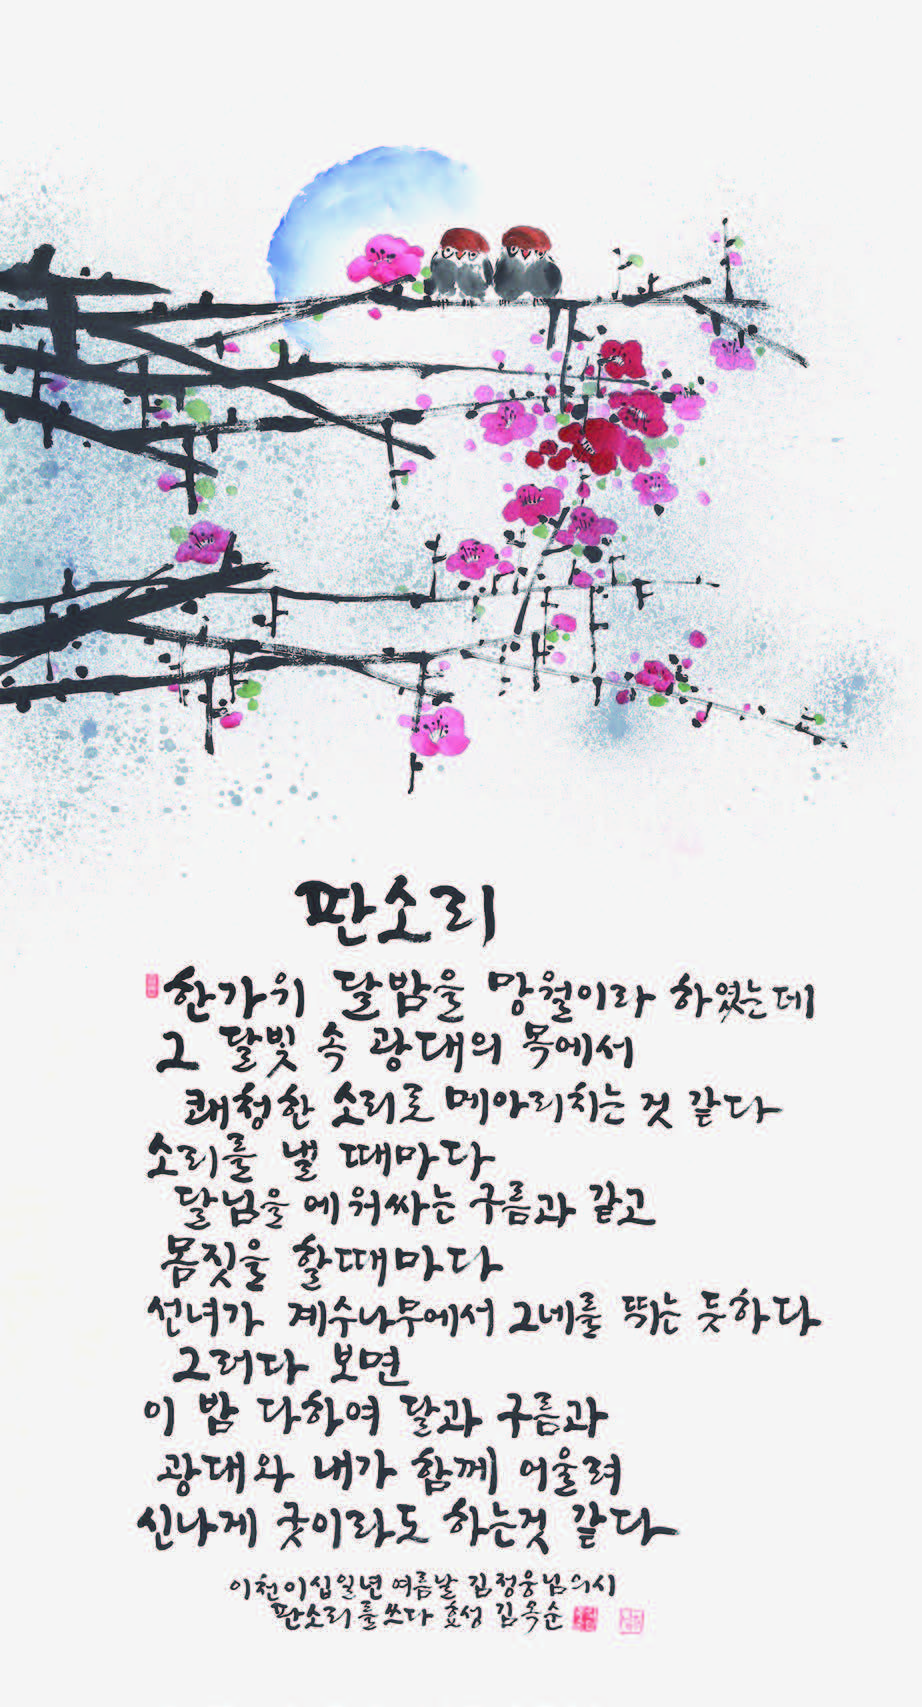 판소리
한가위 달밤을 망월이라 하였는데
그 달빛 속 광대의 목에서
쾌청한 소리로 메아리치는 것 같다
소리를 낼 때마다
달님을 에워싸는 구름과 같고
몸짓을 할때마다
선녀가 계수나무에서 그네를 뛰는 듯하다
그러다 보면
이 밤 다하여 달과 구름과
광대와 내가 함께 어울려
신나게 굿이라도 하는것 같다
이천이십일년 여름날 김정웅님의시
판소리를쓰다 효성 김옥순